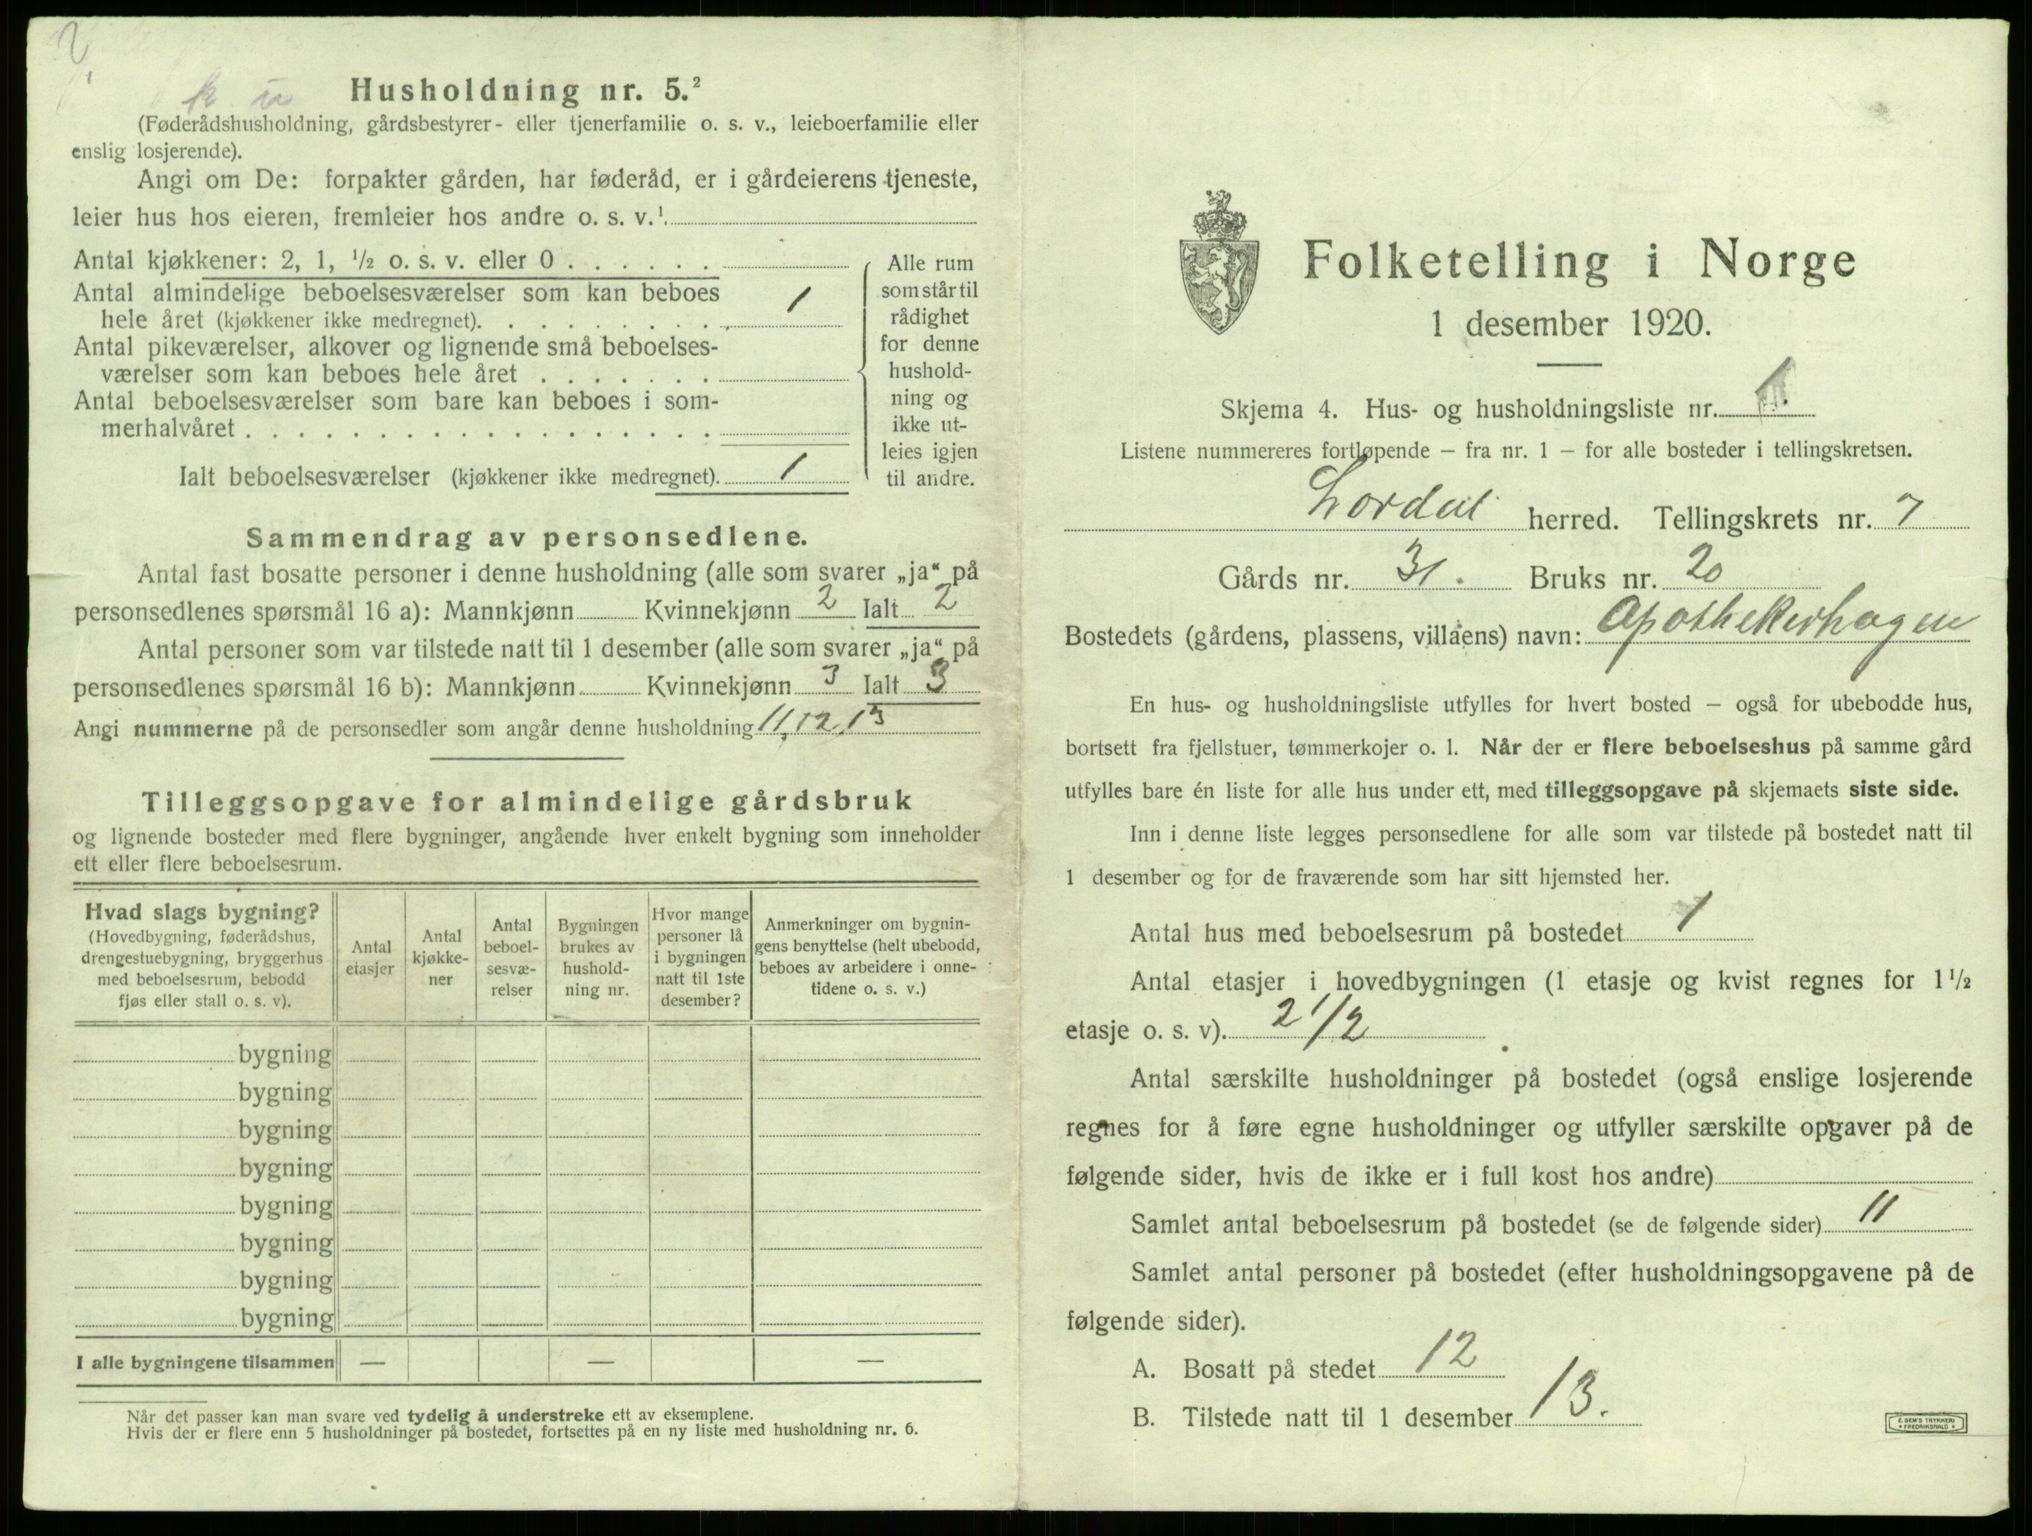 2.
k u
Husholdning nr. 5.²
(Føderådshusholdning, gårdsbestyrer- eller tjenerfamilie o. s. v., leieboerfamilie eller
enslig losjerende).
Angi om De: forpakter gården, har føderåd, er i gårdeierens tjeneste,
leier hus hos eieren, fremleier hos andre o. s. v.¹
Antal kjøkkener: 2, 1, ½ o. s. v. eller 0
Antal almindelige beboelsesværelser som kan beboes
hele året (kjøkkener ikke medregnet). 1
Antal pikeværelser, alkover og lignende små beboelses-
værelser som kan beboes hele året
Antal beboelsesværelser som bare kan beboes i som-
merhalvåret
Ialt beboelsesværelser (kjøkkener ikke medregnet). 1
Alle rum
som står til
rådighet
for denne
hushold-
ning og
ikke ut-
leies igjen
til andre.
Sammendrag av personsedlene.
Antal fast bosatte personer i denne husholdning (alle som svarer „ja“ på
personsedlenes spørsmål 16 a): Mannkjønn Kvinnekjønn 2 Ialt 2
Antal personer som var tilstede natt til 1 desember (alle som svarer „ja“ på
personsedlenes spørsmål 16 b): Mannkjønn Kvinnekjønn 3 Ialt 3
Angi nummerne på de personsedler som angår denne husholdning 11, 12, 13
Tilleggsopgave for almindelige gårdsbruk
og lignende bosteder med flere bygninger, angående hver enkelt bygning som inneholder
ett eller flere beboelsesrum.
Hvad slags bygning?
(Hovedbygning, føderådshus,
drengestuebygning, bryggerhus
med beboelsesrum, bebodd
fjøs eller stall o. s. v).
Antal
etasjer
Antal
kjøkke-
ner
Antal
beboel-
sesvæ-
relser
Bygningen
brukes av
hushold-
ning nr.
Hvor mange
personer lå
i bygningen
natt til 1ste
desember?
Anmerkninger om bygnin-
gens benyttelse (helt ubebodd,
beboes av arbeidere i onne-
tidene o. s. v.)
bygning
bygning
bygning
bygning
bygning
bygning
bygning
bygning
I alle bygningene tilsammen — — —
Når det passer kan man svare ved tydelig å understreke ett av eksemplene.
Hvis der er flere enn 5 husholdninger på bostedet, fortsettes på en ny liste med husholdning nr. 6.
Folketelling i Norge
1 desember 1920.
Skjema 4. Hus- og husholdningsliste nr. 1.
Listene nummereres fortløpende – fra nr. 1 – for alle bosteder i tellingskretsen.
Lærdal herred. Tellingskrets nr. 7
Gårds nr. 31. Bruks nr. 20
Bostedets (gårdens, plassens, villaens) navn: Apothekerhagen
En hus- og husholdningsliste utfylles for hvert bosted – også for ubebodde hus,
bortsett fra fjellstuer, tømmerkojer o. l. Når der er flere beboelseshus på samme gård
utfylles bare én liste for alle hus under ett, med tilleggsopgave på skjemaets siste side.
Inn i denne liste legges personsedlene for alle som var tilstede på bostedet natt til
1 desember og for de fraværende som har sitt hjemsted her.
Antal hus med beboelsesrum på bostedet 1
Antal etasjer i hovedbygningen (1 etasje og kvist regnes for 1½
etasje o. s. v). 2 1/2
Antal særskilte husholdninger på bostedet (også enslige losjerende
regnes for å føre egne husholdninger og utfyller særskilte opgaver på de
følgende sider, hvis de ikke er i full kost hos andre)
Samlet antal beboelsesrum på bostedet (se de følgende sider) 11
Samlet antal personer på bostedet (efter husholdningsopgavene på de
følgende sider).
A. Bosatt på stedet 12
B. Tilstede natt til 1 desember 13.
E. SEM'S TRYKKERI
FREDRIKSHALD